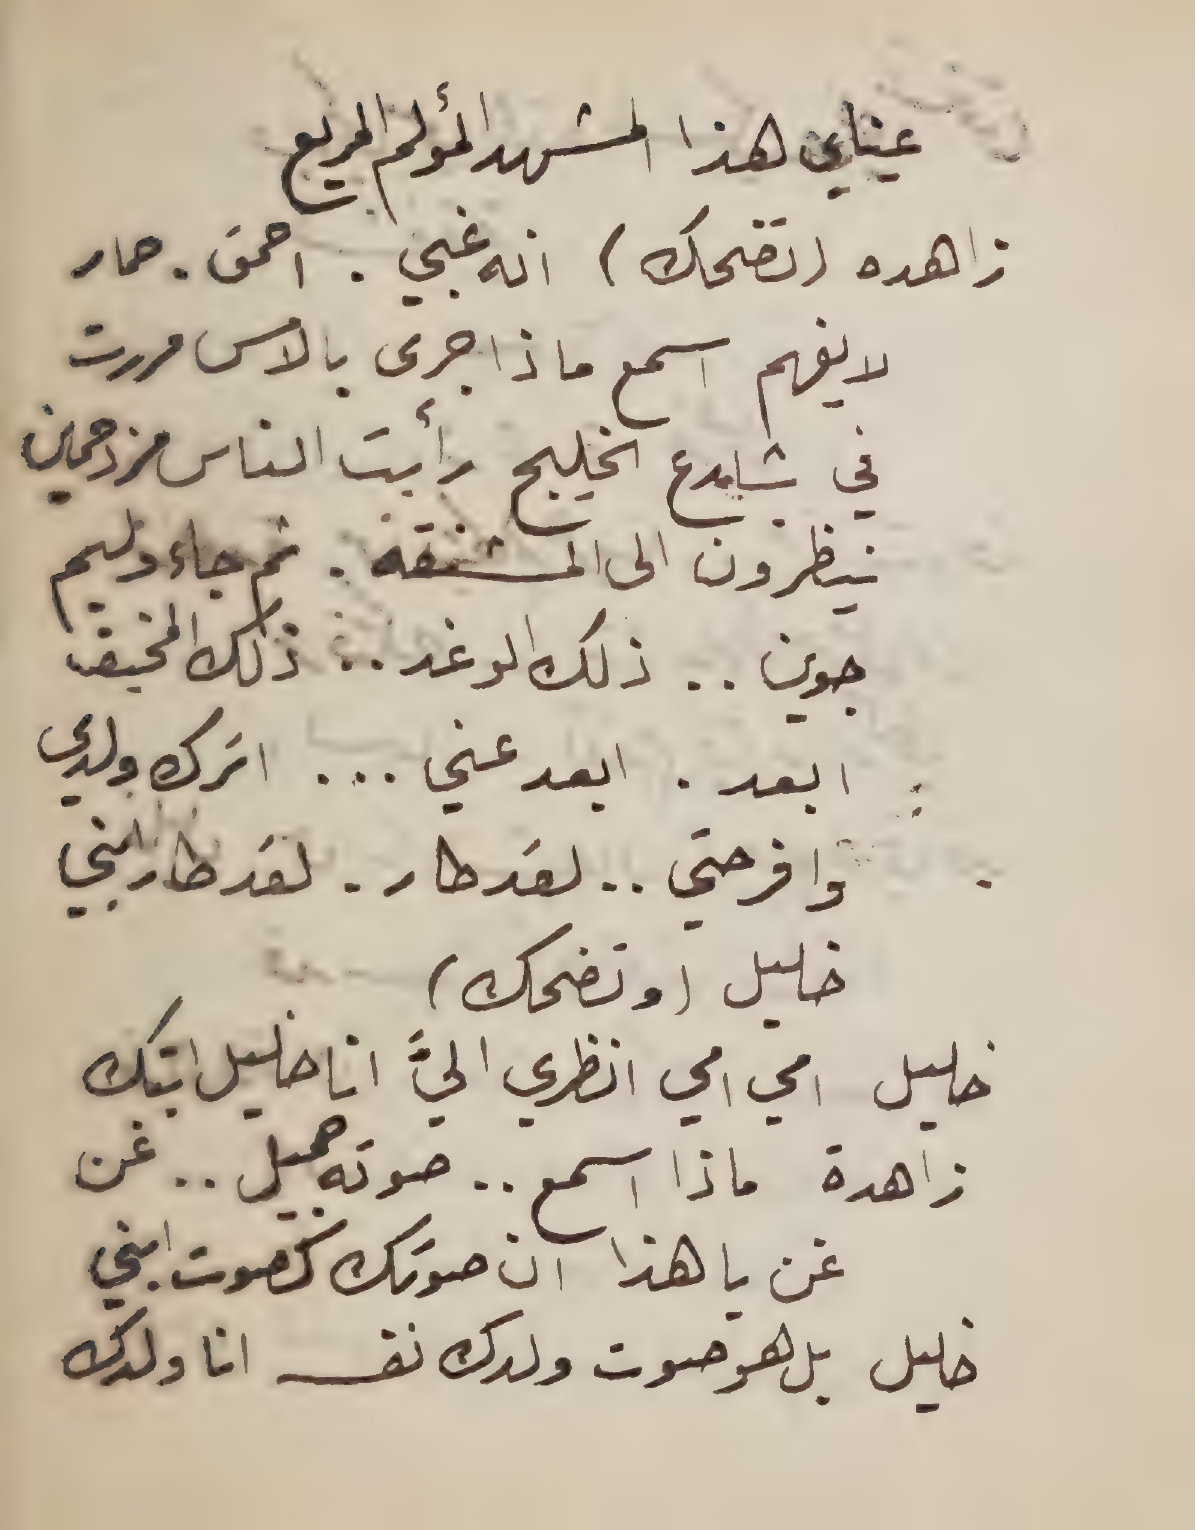 عيناي هذا المشهد المؤلم المريع
زاهده (تضحك) انه غبي . احمق . حمار
لا يفهم اسمع ماذا جرى بالامس مررت
في شارع الخليج رأيت الناس مزدحمين
ينظرون الى المشنقه . ثم جاء وليم
جوين .. ذلك الوغد .. ذلك المخيف
ابعد . ابعد عني ... اترك ولدي
وافرحتي .. لقد طار . لقد طار ابني
خليل (وتضحك)
خليل امي امي انظري اليَّ انا خليل ابنك
زاهدة ماذا اسمع .. صوته جميل .. غن
غن يا هذا ان صوتك كصوت ابني
خليل بل هو صوت ولدك نفسه انا ولدك